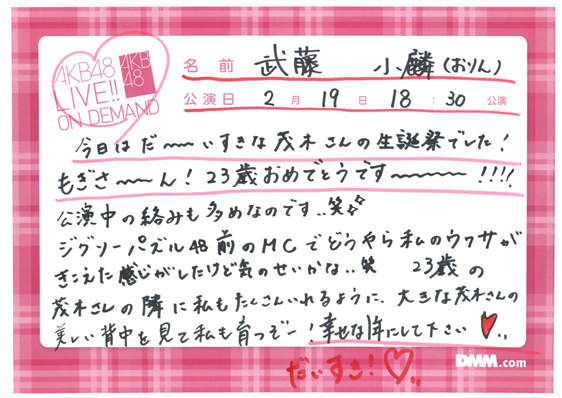 AKB48
LIVE!!
ON DEMAND
AKB
48
名前 武藤 小麟(おりん)
公演日 2月19日 18:30 公演
今日はだ〜〜いすきな茂木さんの生誕祭でした!
もぎさ〜〜ん!23歳おめでとうです〜〜〜!!!!
公演中の絡みも多めなのです..笑
ジグソーパズル48前のMCでどうやら私のウワサが
きこえた感じがしたけど気のせいかな..笑 23歳の
茂木さんの隣に私もたくさんいれるように、大きな茂木さんの
美しい背中を見て私も育つぞー!幸せな1年にして下さい♡..
だいすき!♡..
DMM.com